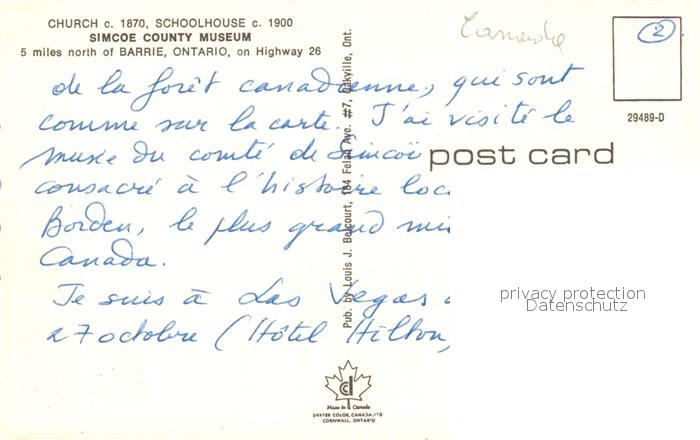 CHURCH c. 1870, SCHOOLHOUSE c. 1900
SIMCOE COUNTY MUSEUM
5 miles north of BARRIE, ONTARIO, on Highway 26
2
29489-D
de la forêt canadienne, qui sont
comme sur la carte. J'ai visité le
musée du comté de Simcoë
consacré à l'histoire loc
Borden, le plus grand
Canada.
Je suis à Las Vegas
27 octobre (Hôtel Hilton,
post card
Pub. by Louis J. Belcourt, 184 Felan Ave. #7, Oakville, Ont.
privacy protection
Datenschutz
Made in Canada
DEXTER COLOR, CANADA, LTD
CORNWALL, ONTARIO